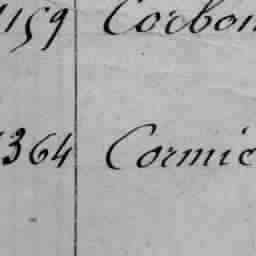 1159 Corbon
364 Cormie